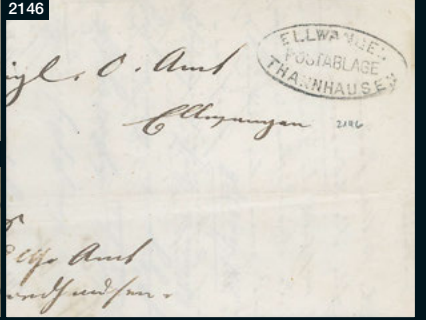 2146
ELLWANGEN
POSTABLAGE
THANNHAUSEN
igl. O. Amt
Ellwangen
2146
Amt